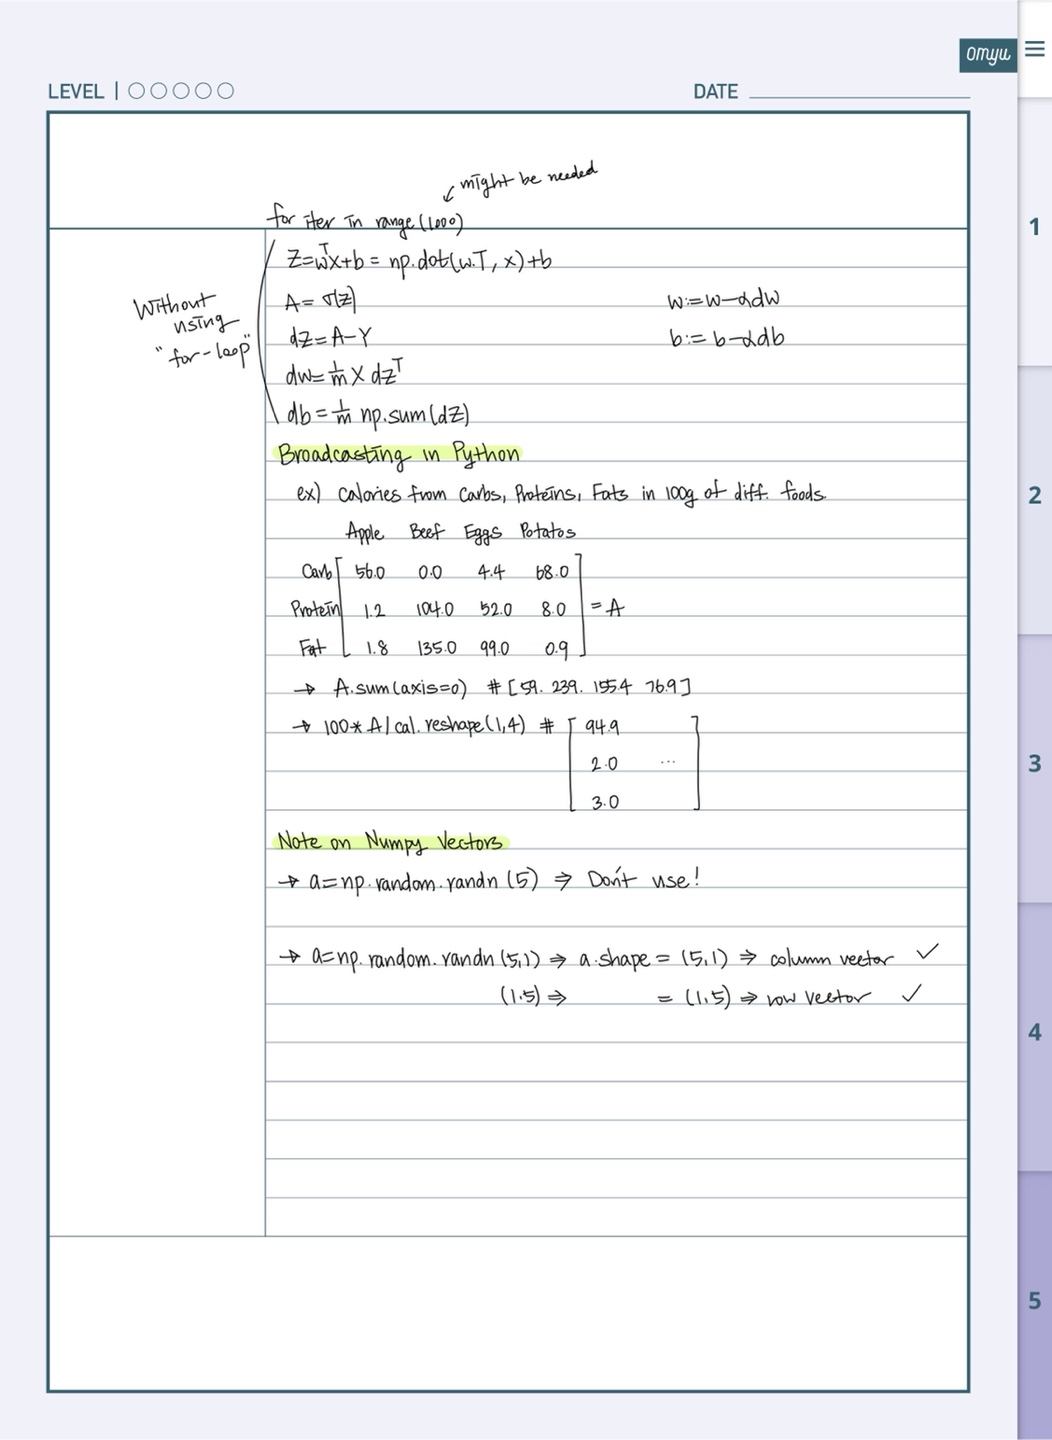 omyu
LEVEL | ○○○○○
DATE
might be needed
for iter in range(1000)
Z=wᵀX+b = np.dot(w.T, x)+b
Without using "for-loop"
A= σ(z)
w:=w-αdw
dZ=A-Y
b:= b-αdb
dw=1/m X dZᵀ
db=1/m np.sum(dZ)
Broadcasting in Python
ex) Calories from Carbs, Proteins, Fats in 100g of diff. foods
Apple Beef Eggs Potatos
Carb 56.0 0.0 4.4 68.0
Protein 1.2 104.0 52.0 8.0 = A
Fat 1.8 135.0 99.0 0.9
→ A.sum(axis=0) # [59. 239. 155.4 76.9]
→ 100* A/cal.reshape(1,4) # [ 94.9
2.0 ...
3.0 ]
Note on Numpy Vectors
→ a=np.random.randn (5) ⇒ Don't use!
→ a=np.random.randn (5,1) ⇒ a.shape = (5,1) ⇒ column vector ✓
(1.5) ⇒ = (1,5) ⇒ row vector ✓
1
2
3
4
5